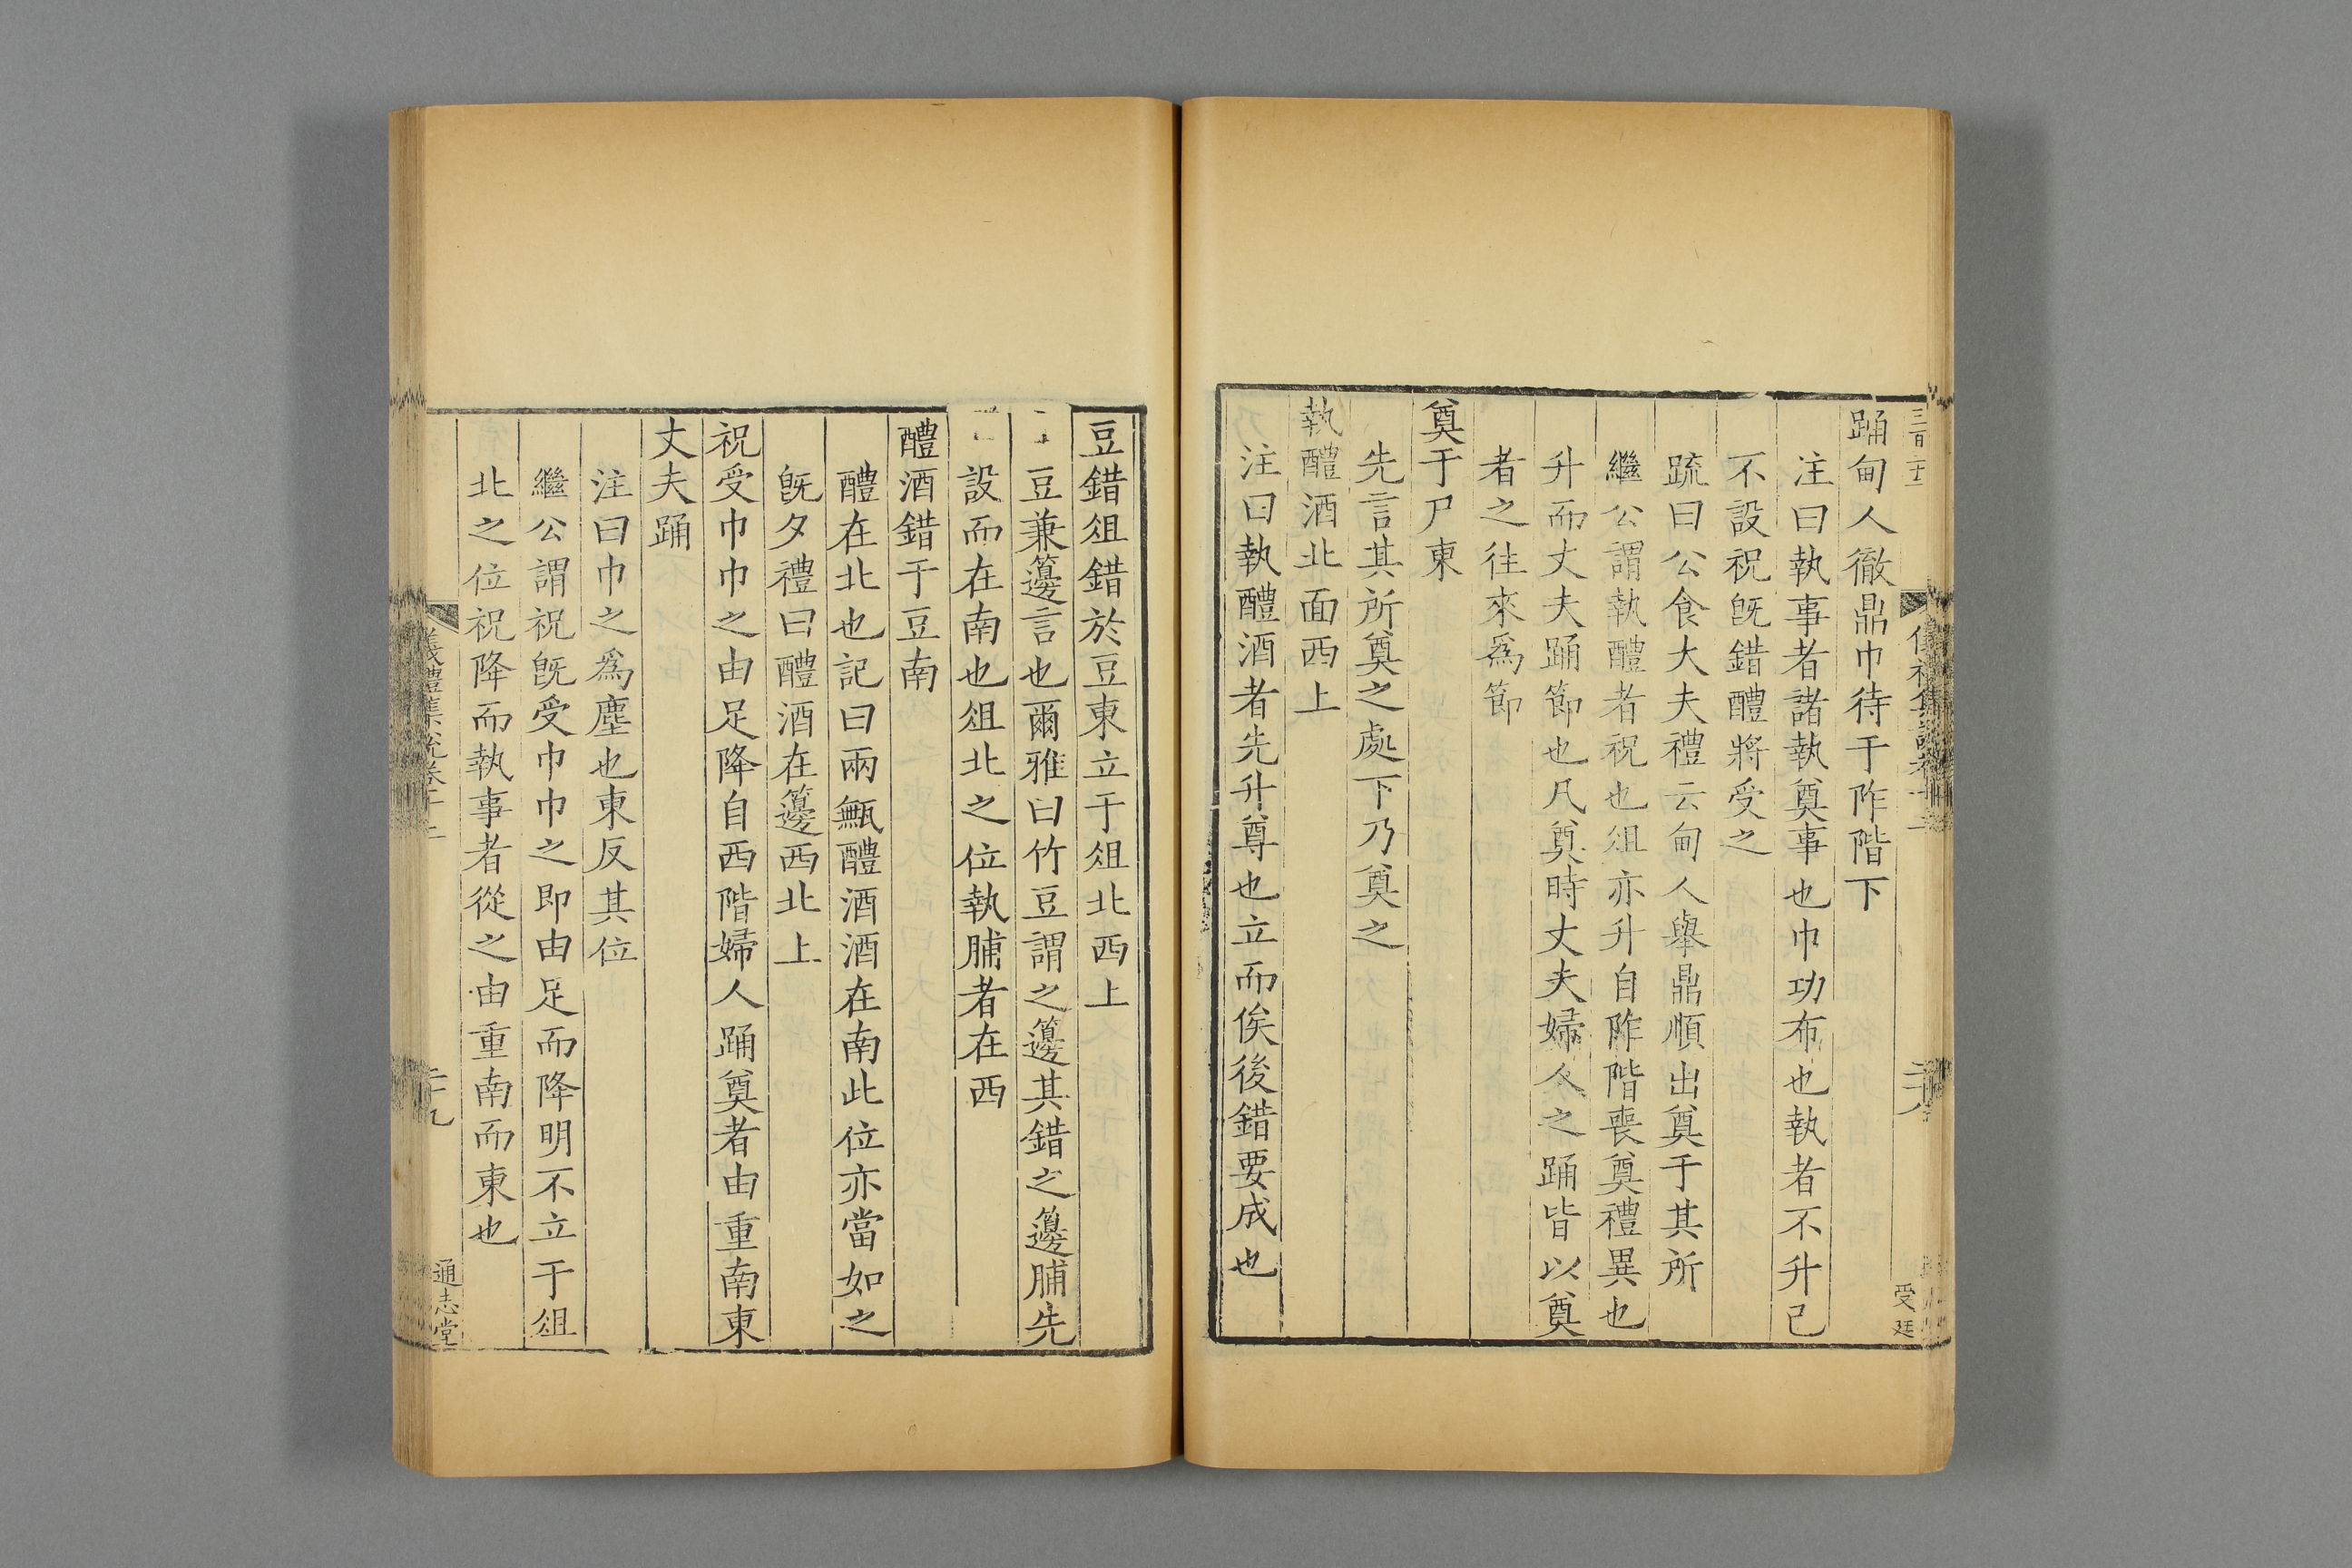 踊甸人徹鼎巾待于阼階下
注曰執事者諸執奠事也巾功布也執者不升己
不設祝旣錯醴將受之
疏曰公食大夫禮云甸人舉鼎順出奠于其所
繼公謂執醴者祝也俎亦升自阼階喪奠禮異也
升而丈夫踊節也凡奠時丈夫婦人之踊皆以奠
者之往來爲節
奠于尸東
先言其所奠之處下乃奠之
執醴酒北面西上
注曰執醴酒者先升尊也立而俟後錯要成也
豆錯俎錯於豆東立于俎北西上
豆兼籩言也爾雅曰竹豆謂之籩其錯之籩脯先
設而在南也俎北之位執脯者在西
醴酒錯于豆南
醴在北也記曰兩甒醴酒酒在南此位亦當如之
旣夕禮曰醴酒在籩西北上
祝受巾巾之由足降自西階婦人踊奠者由重南東
丈夫踊
注曰巾之爲塵也東反其位
繼公謂祝旣受巾巾之即由足而降明不立于俎
北之位祝降而執事者從之由重南而東也
儀禮集說卷十二
二十九
通志堂